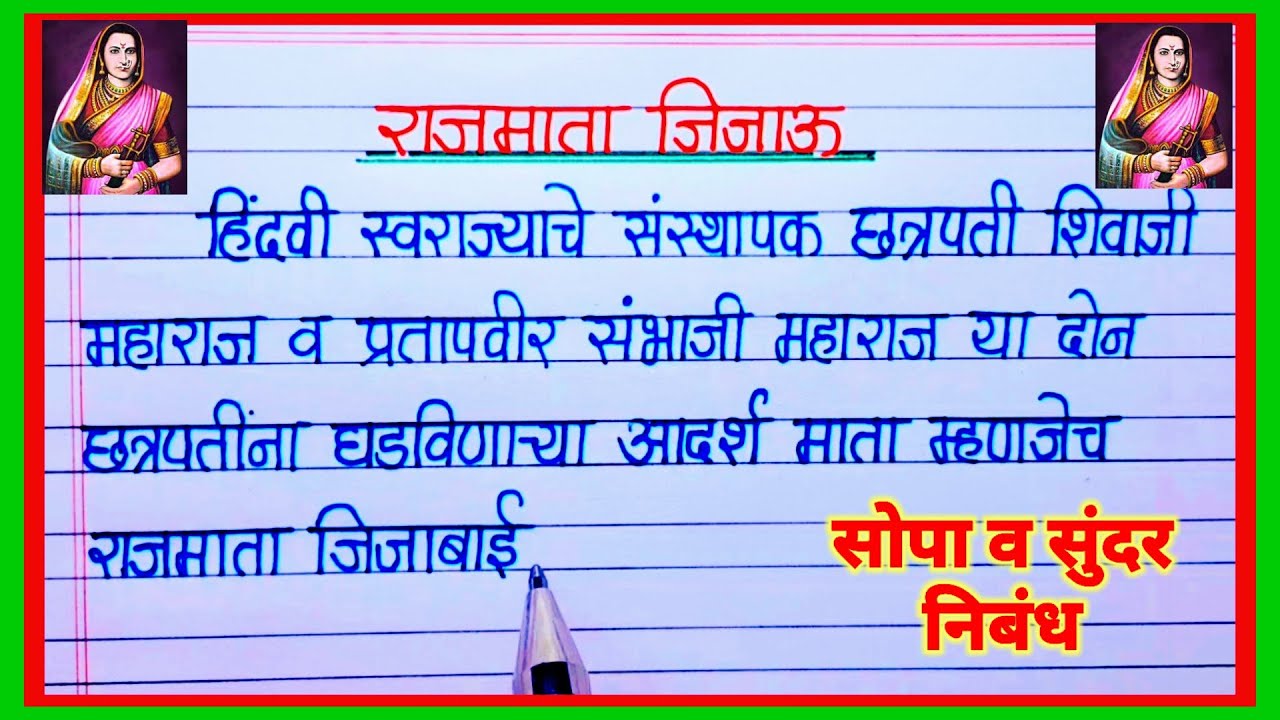 राजमाता जिजाऊ
हिंदवी स्वराज्याचे संस्थापक छत्रपती शिवाजी
महाराज व प्रतापवीर संभाजी महाराज या दोन
छत्रपतींना घडविणाऱ्या आदर्श माता म्हणजेच
राजमाता जिजाबाई
सोपा व सुंदर
निबंध